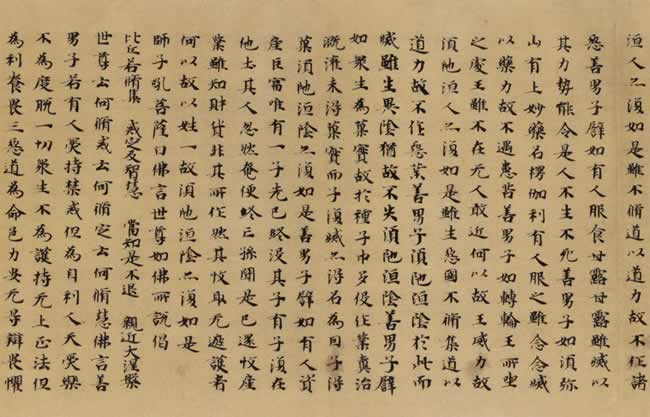 洹人亦復如是雖不脩道以道力故不作諸
惡善男子譬如有人服食甘露甘露雖滅以
其力勢能令是人不生不死善男子如須弥
山有上妙藥名楞伽利有人服之雖念念滅
以藥力故不遇患苦善男子如轉輪王所坐
之處王雖不在无人敢近何以故王威力故
須陁洹人亦復如是雖生惡國不脩集道以
道力故不作惡業善男子須陁洹陰於此而
滅雖生異陰猶故不失須陁洹陰善男子譬
如衆生為菓實故於種子中多役作業糞治
溉灌未得菓實而子復滅亦得名為因子得
菓須陁洹陰亦復如是善男子譬如有人資
產巨富唯有一子先已終没其子有子復在
他土其人忽然奄便終亡孫聞是已還收產
業雖知財貨非其所作然其收取无遮護者
何以故以姓一故須陁洹陰亦復如是
師子吼菩薩白佛言世尊如佛所說偈
比丘若脩集 戒定及智慧 當知是不退 親近大涅槃
世尊云何脩戒云何脩定云何脩慧佛言善
男子若有人受持禁戒但為自利人天受樂
不為度脫一切衆生不為護持无上正法但
為利養畏三惡道為命色力安无㝵辯畏懼